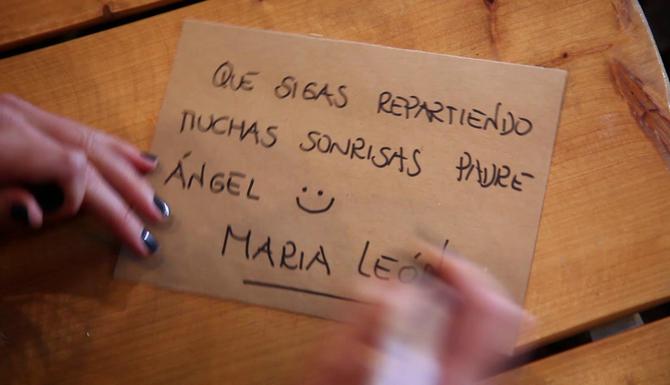 QUE SIGAS REPARTIENDO
MUCHAS SONRISAS PADRE
ÁNGEL
MARIA LEÓN